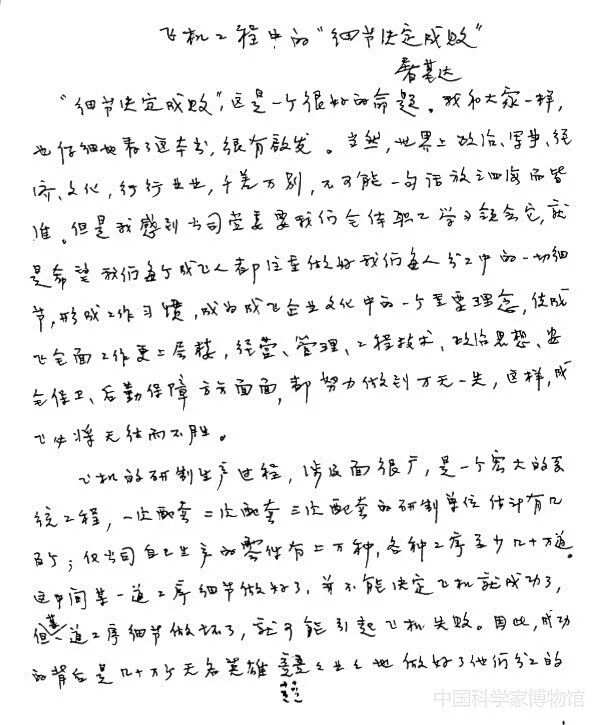 飞机工程中的“细节决定成败”
屠基达
“细节决定成败”,这是一个很好的命题。我和大家一样,
也仔细地看了这本书,很有启发。当然,世界上政治、军事、经
济、文化,行行业业,千差万别,不可能一句话放之四海而皆
准。但是我感到公司党委要我们全体职工学习领会它,就
是希望我们每个成飞人都注重做好我们每人分工中的一切细
节,形成工作习惯,成为成飞企业文化中的一个重要理念,使成
飞全面工作更上层楼,经营、管理、工程技术、政治思想、安
全保卫、后勤保障方方面面,都努力做到万无一失,这样,成
飞必将无往而不胜。
飞机的研制生产过程,涉及面很广,是一个宏大的系
统工程,一次配套二次配套三次配套的研制单位估计有几
百个;仅公司自己生产的零件有上万种,各种工序至少几十万道。
这中间某一道工序细节做好了,并不能决定飞机就成功了,
但某一道工序细节做坏了,就可能引起飞机失败。因此,成功
的背后是几十万个无名英雄兢兢业业地做好了他们分工的
中国科学家博物馆